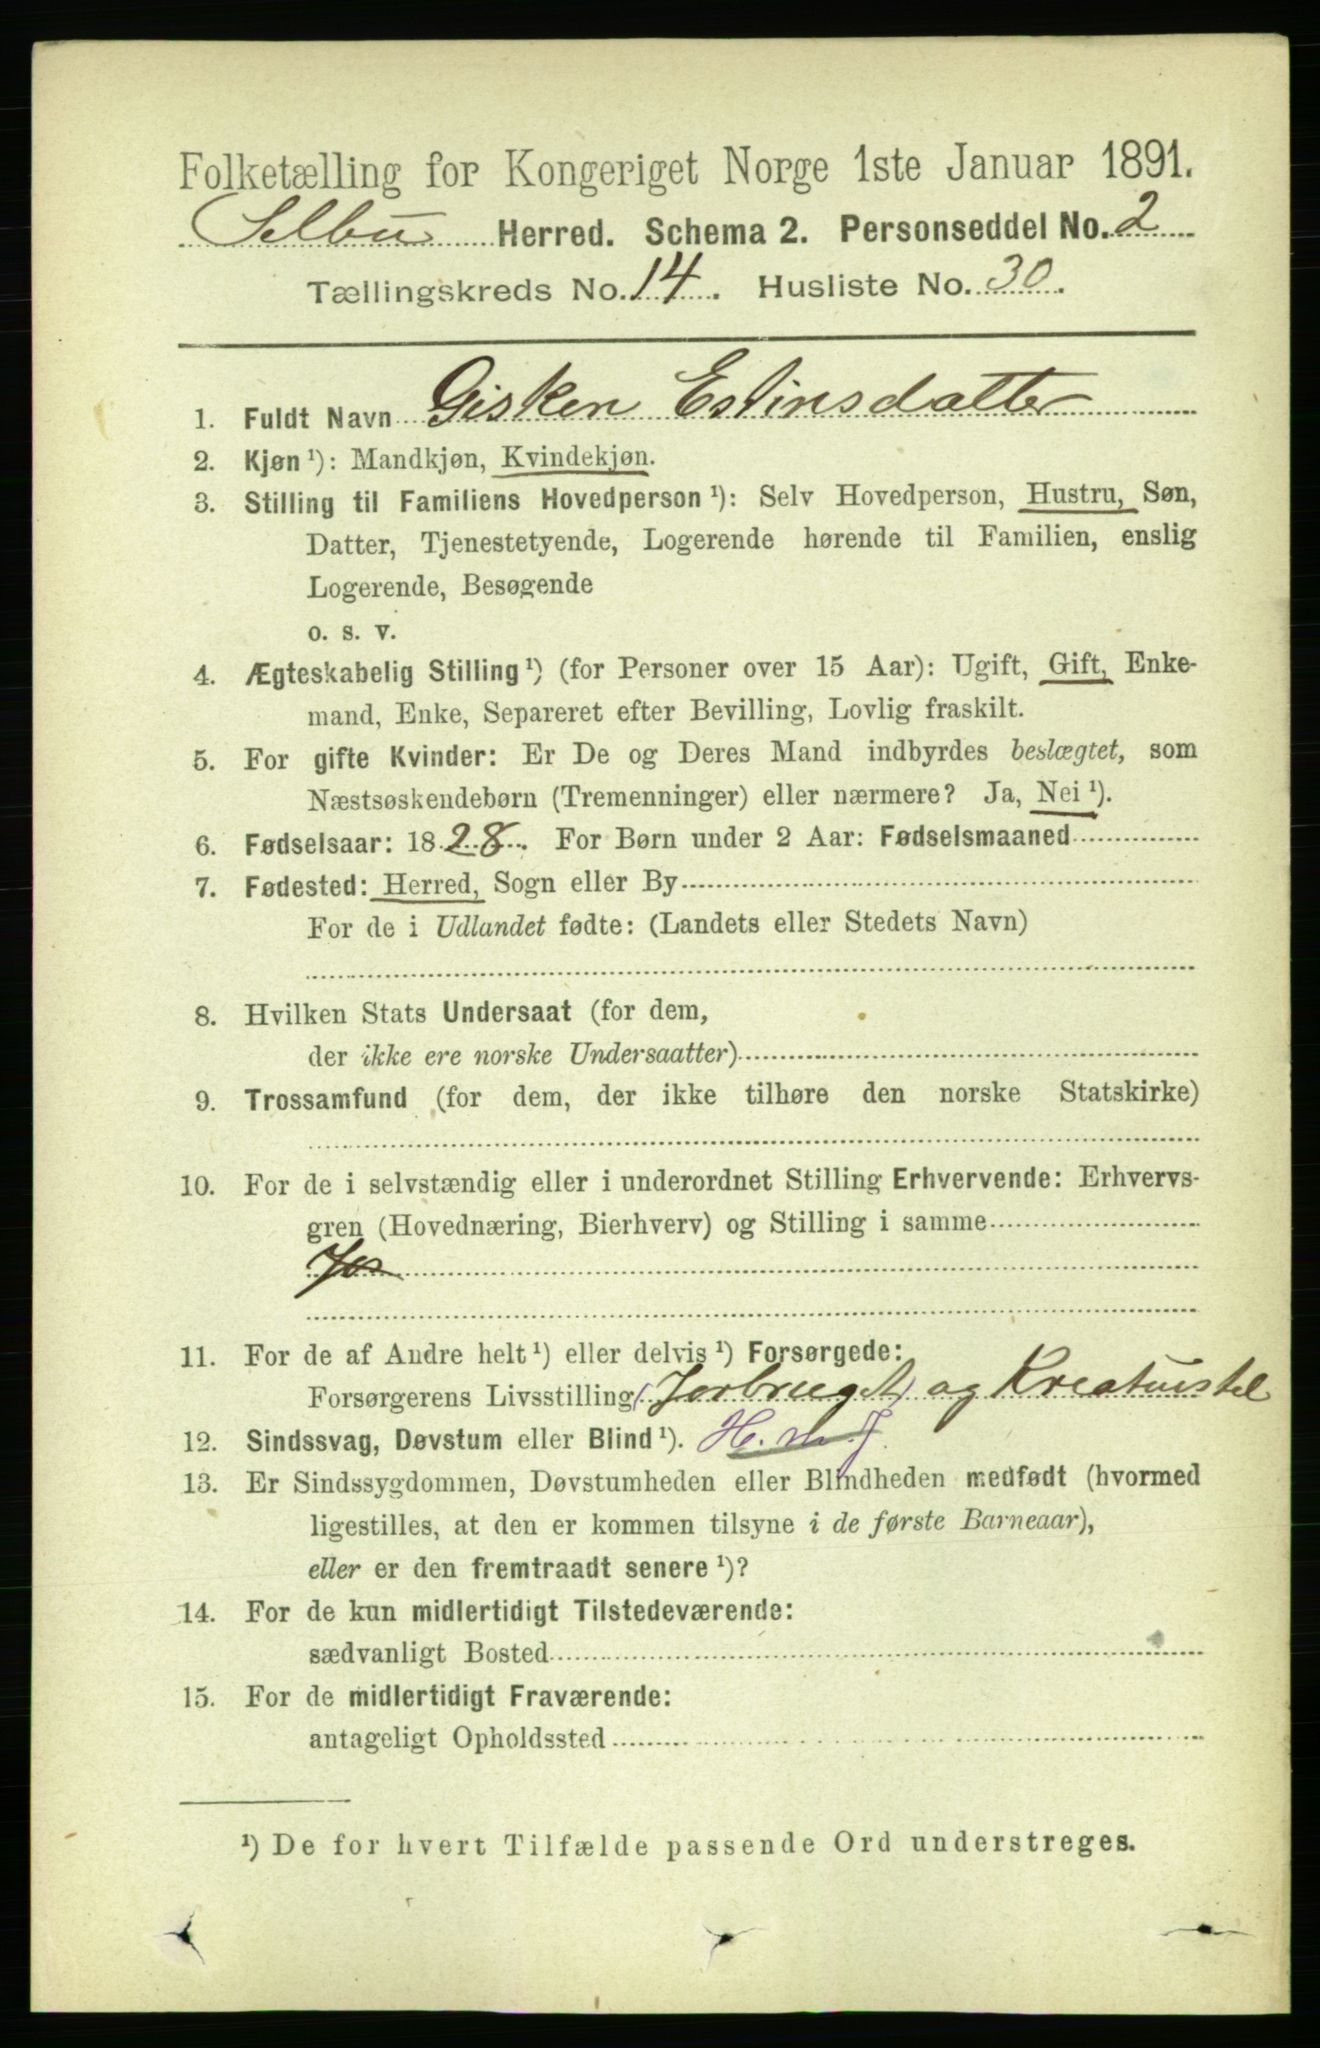 Folketælling for Kongeriget Norge 1ste Januar 1891.
Selbu Herred. Schema 2. Personseddel No. 2
Tællingskreds No. 14. Husliste No. 30.
1. Fuldt Navn Gisken Estinsdatter
2. Kjøn ¹): Mandkjøn, Kvindekjøn.
3. Stilling til Familiens Hovedperson ¹): Selv Hovedperson, Hustru, Søn,
Datter, Tjenestetyende, Logerende hørende til Familien, enslig
Logerende, Besøgende
o. s. v.
4. Ægteskabelig Stilling ¹) (for Personer over 15 Aar): Ugift, Gift, Enke-
mand, Enke, Separeret efter Bevilling, Lovlig fraskilt.
5. For gifte Kvinder: Er De og Deres Mand indbyrdes beslægtet, som
Næstsøskendebørn (Tremenninger) eller nærmere? Ja, Nei ¹).
6. Fødselsaar: 1828. For Børn under 2 Aar: Fødselsmaaned
7. Fødested: Herred, Sogn eller By
For de i Udlandet fødte: (Landets eller Stedets Navn)
8. Hvilken Stats Undersaat (for dem,
der ikke ere norske Undersaatter)
9. Trossamfund (for dem, der ikke tilhøre den norske Statskirke)
10. For de i selvstændig eller i underordnet Stilling Erhvervende: Erhvervs-
gren (Hovednæring, Bierhverv) og Stilling i samme
11. For de af Andre helt ¹) eller delvis ¹) Forsørgede:
Forsørgerens Livsstilling (Jorbruget) og Kreaturstel
12. Sindssvag, Døvstum eller Blind ¹). H. m. J.
13. Er Sindssygdommen, Døvstumheden eller Blindheden medfødt (hvormed
ligestilles, at den er kommen tilsyne i de første Barneaar),
eller er den fremtraadt senere ¹)?
14. For de kun midlertidigt Tilstedeværende:
sædvanligt Bosted
15. For de midlertidigt Fraværende:
antageligt Opholdssted
¹) De for hvert Tilfælde passende Ord understreges.